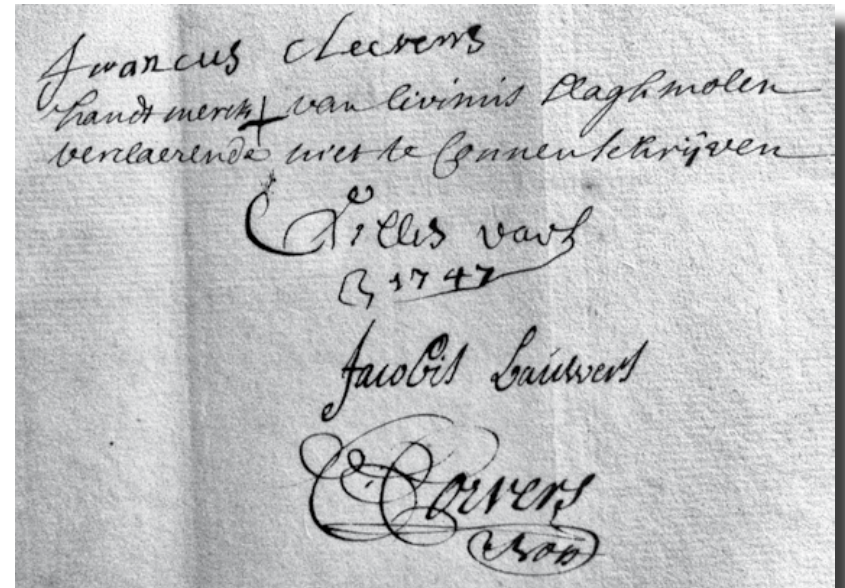 Francus Cleerens
handtmerck + van livinis Plaghmolen
verclaerende niet te Connen schrijven
Gillis vaes
1747
Jacobis Lauwers
Corvers